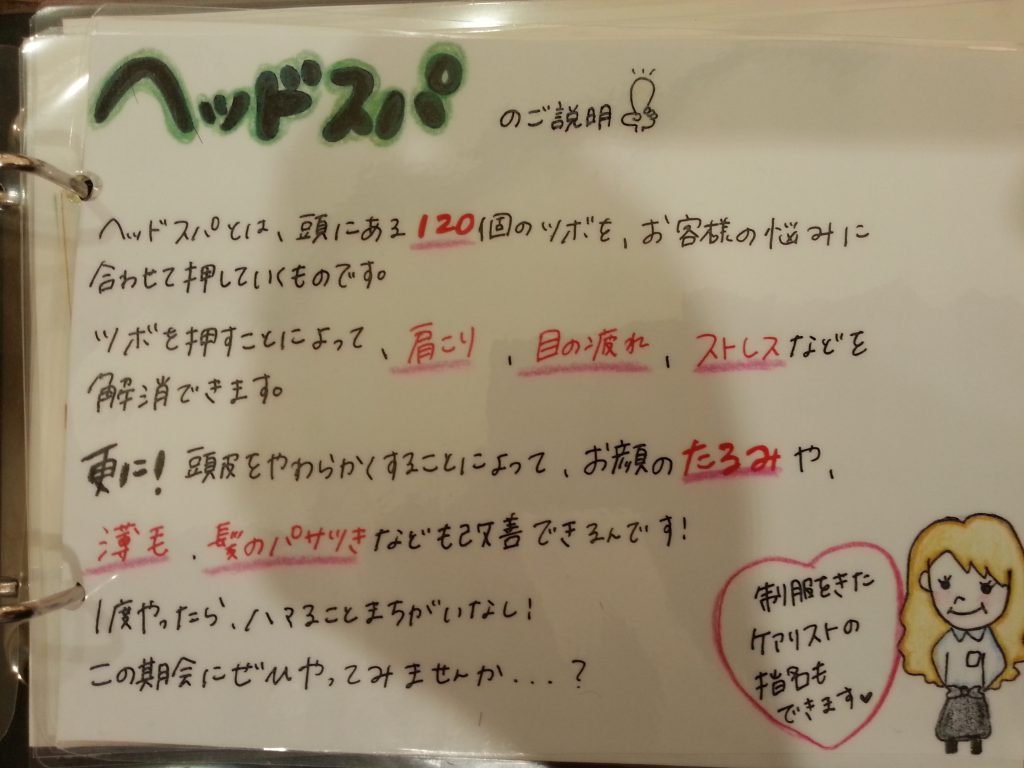 ヘッドスパ のご説明
ヘッドスパとは、頭にある120個のツボを、お客様の悩みに
合わせて押していくものです。
ツボを押すことによって、肩こり、目の疲れ、ストレスなどを
解消できます。
更に!頭皮をやわらかくすることによって、お顔のたるみや、
薄毛、髪のパサツきなども改善できるんです!
1度やったら、ハマることまちがいなし!
この期会にぜひやってみませんか...?
制服をきた
ケアリストの
指名も
できます♥